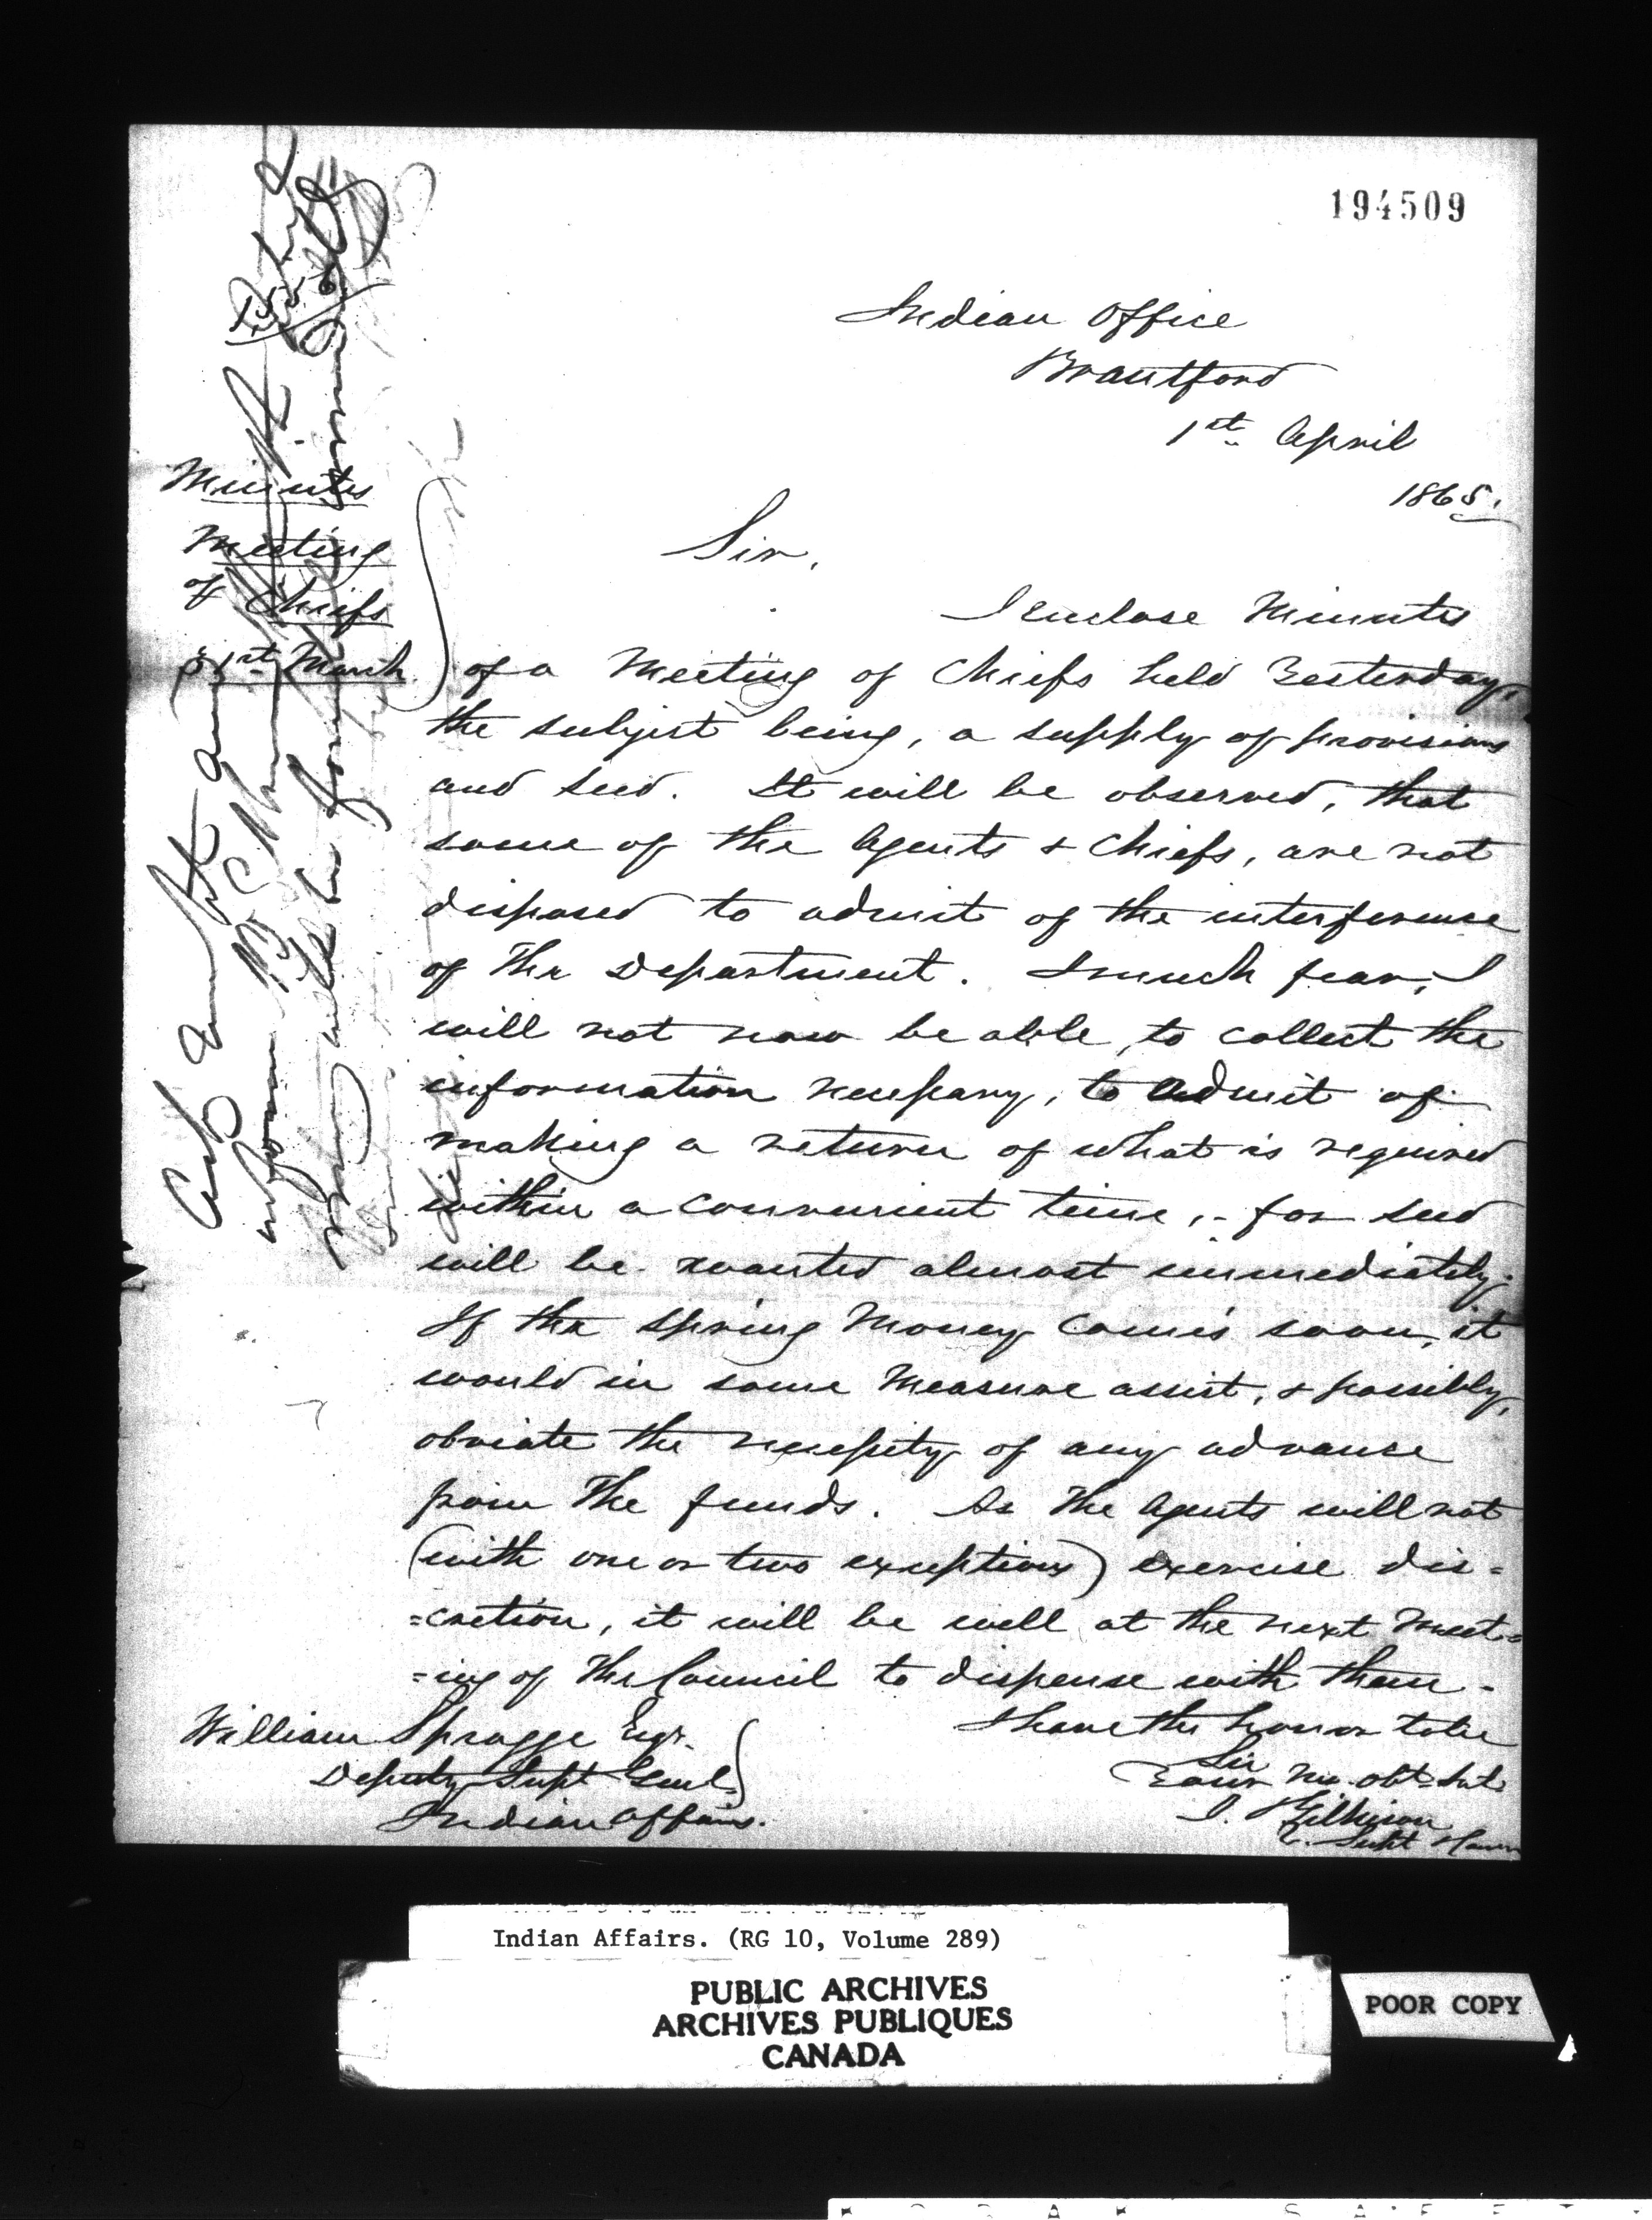 194509
Indian Office
Brantford
1st April
1865.
Minutes
Meeting
of Chiefs
31st March
Sir,
I enclose Minutes
of a Meeting of Chiefs held Yesterday,
the subject being, a supply of provisions
and seed. It will be observed, that
some of the Agents & Chiefs, are not
disposed to admit of the interference
of the Department. I much fear, I
will not now be able, to collect the
information necessary, to admit of
making a return of what is required
within a convenient time, - for seed
will be wanted almost immediately.
If the Spring Money comes soon, it
would in some measure assist, & possibly,
obviate the necessity of any advance
from the funds. As the Agents will not
(with one or two exceptions) exercise dis=
=cretion, it will be well at the next Meet=
=ing of the Council to dispense with them -
I have the honor to be
Sir
Your obt. Svt.
J. Gilkison
Supt
William Spragge Esqr.
Deputy Supt Genl.
Indian Affairs.
Indian Affairs. (RG 10, Volume 289)
PUBLIC ARCHIVES
ARCHIVES PUBLIQUES
CANADA
POOR COPY